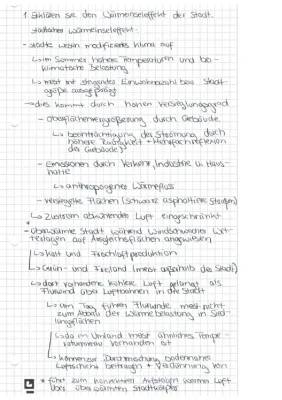 1. Erklären sie den Wärmeinseleffekt der Stadt.
städtischer Wärmeinseleffekt:
- Städte weisen modifiziertes Klima auf
↳ im Sommer höhere Temperaturen und bio-
klimatische Belastung
↳ meist mit steigender Einwohnerzahl bzw. Stadt-
größe ausgeprägt
→ dies kommt durch hohen Versiegelungsgrad
- Oberflächenvergrößerung durch Gebäude
↳ beeinträchtigung der Strömung durch
höhere Rauigkeit + Mehrfachreflexion
der Gebäude!
- Emissionen durch Verkehr, Industrie u. Haus-
halte
↳ anthropogener Wärmefluss
- versiegelte Flächen (schwarze asphaltierte Straßen)
↳ Zustrom abkühlender Luft eingeschränkt
* - überwärmte Stadt während windschwacher Wet-
terlagen auf Ausgleichsflächen angewiesen
↳ Kalt und Frischluftproduktion
↳ Grün- und Freiland (meist außerhalb der Stadt)
↳ dort vorhandene kühlere Luft gelangt als
Flurwind über Luftbahnen in die Stadt
↳ am Tag führen Flurwinde meist nicht
zum Abbau der Wärmebelastung in Sied-
lungsflächen
↳ da im Umland meist ähnliches Tempe-
raturniveau vorhanden ist
↳ können zur Durchmischung bodennaher
Luftschicht beitragen + Verdünnung von
* führt zum konvektiven Aufsteigen warmer Luft
über überwärmten Stadtkörper